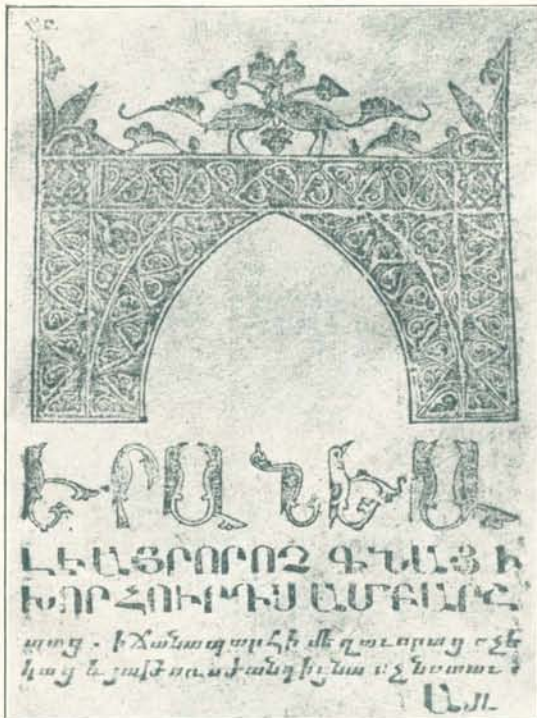 ԵՐԱՆԵԱ
Լ Է ԱՅՐ ՈՐ ՈՉ ԳՆԱՑ Ի
ԽՈՐՀՈՒՐԴՍ ԱՄԲԱՐՇ
տաց . ի ճանապարհի մեղաւորաց ոչ ե
կաց և յաթոռս ժանտից նա ոչ նստաւ :
Այլ